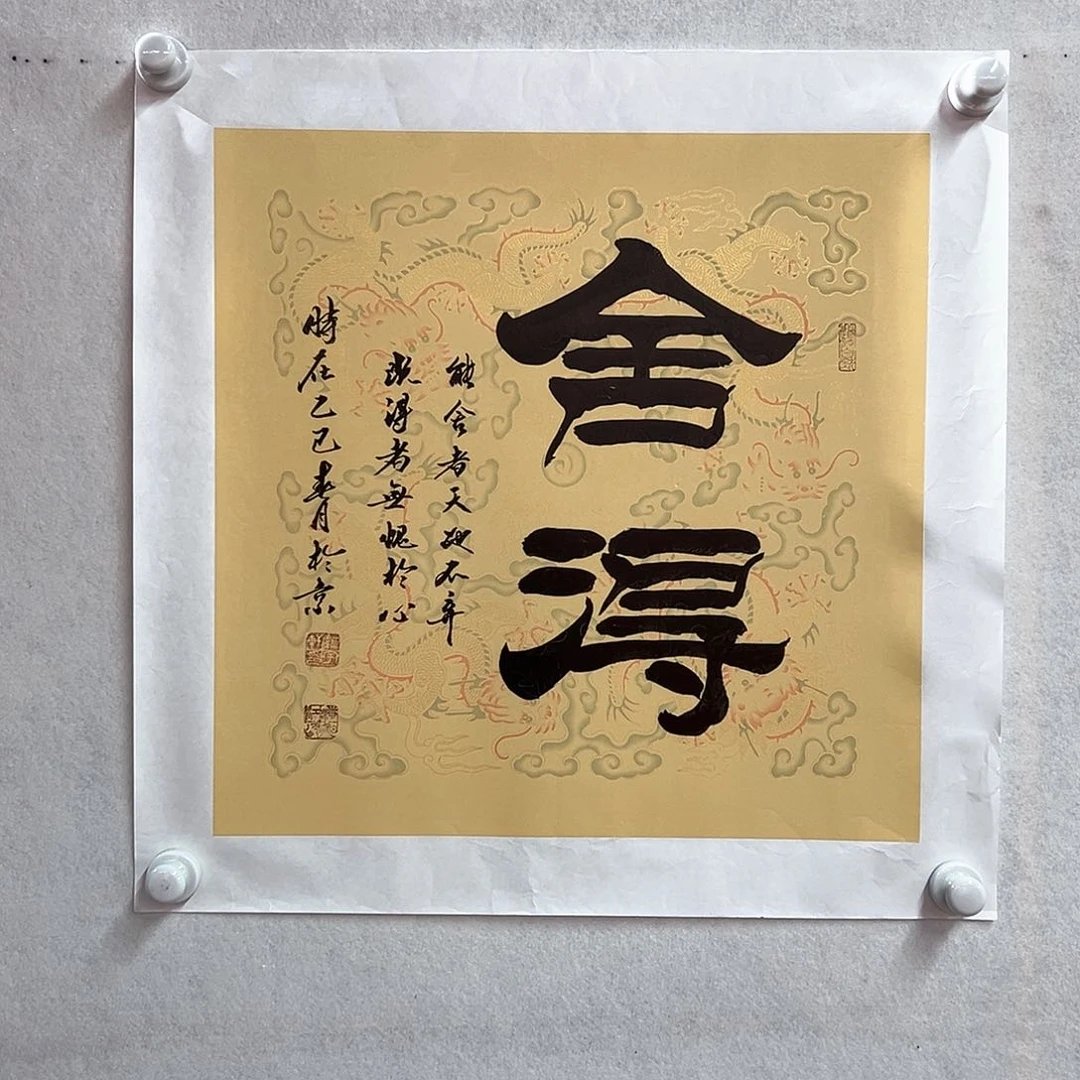 舍得
能舍者天地不弃
既得者無愧於心
時在乙巳春月於京